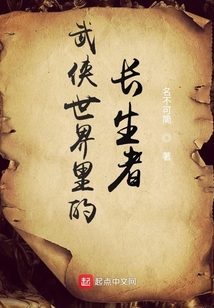 武侠世界里的
长生者
名不可 著
起点
起点中文网